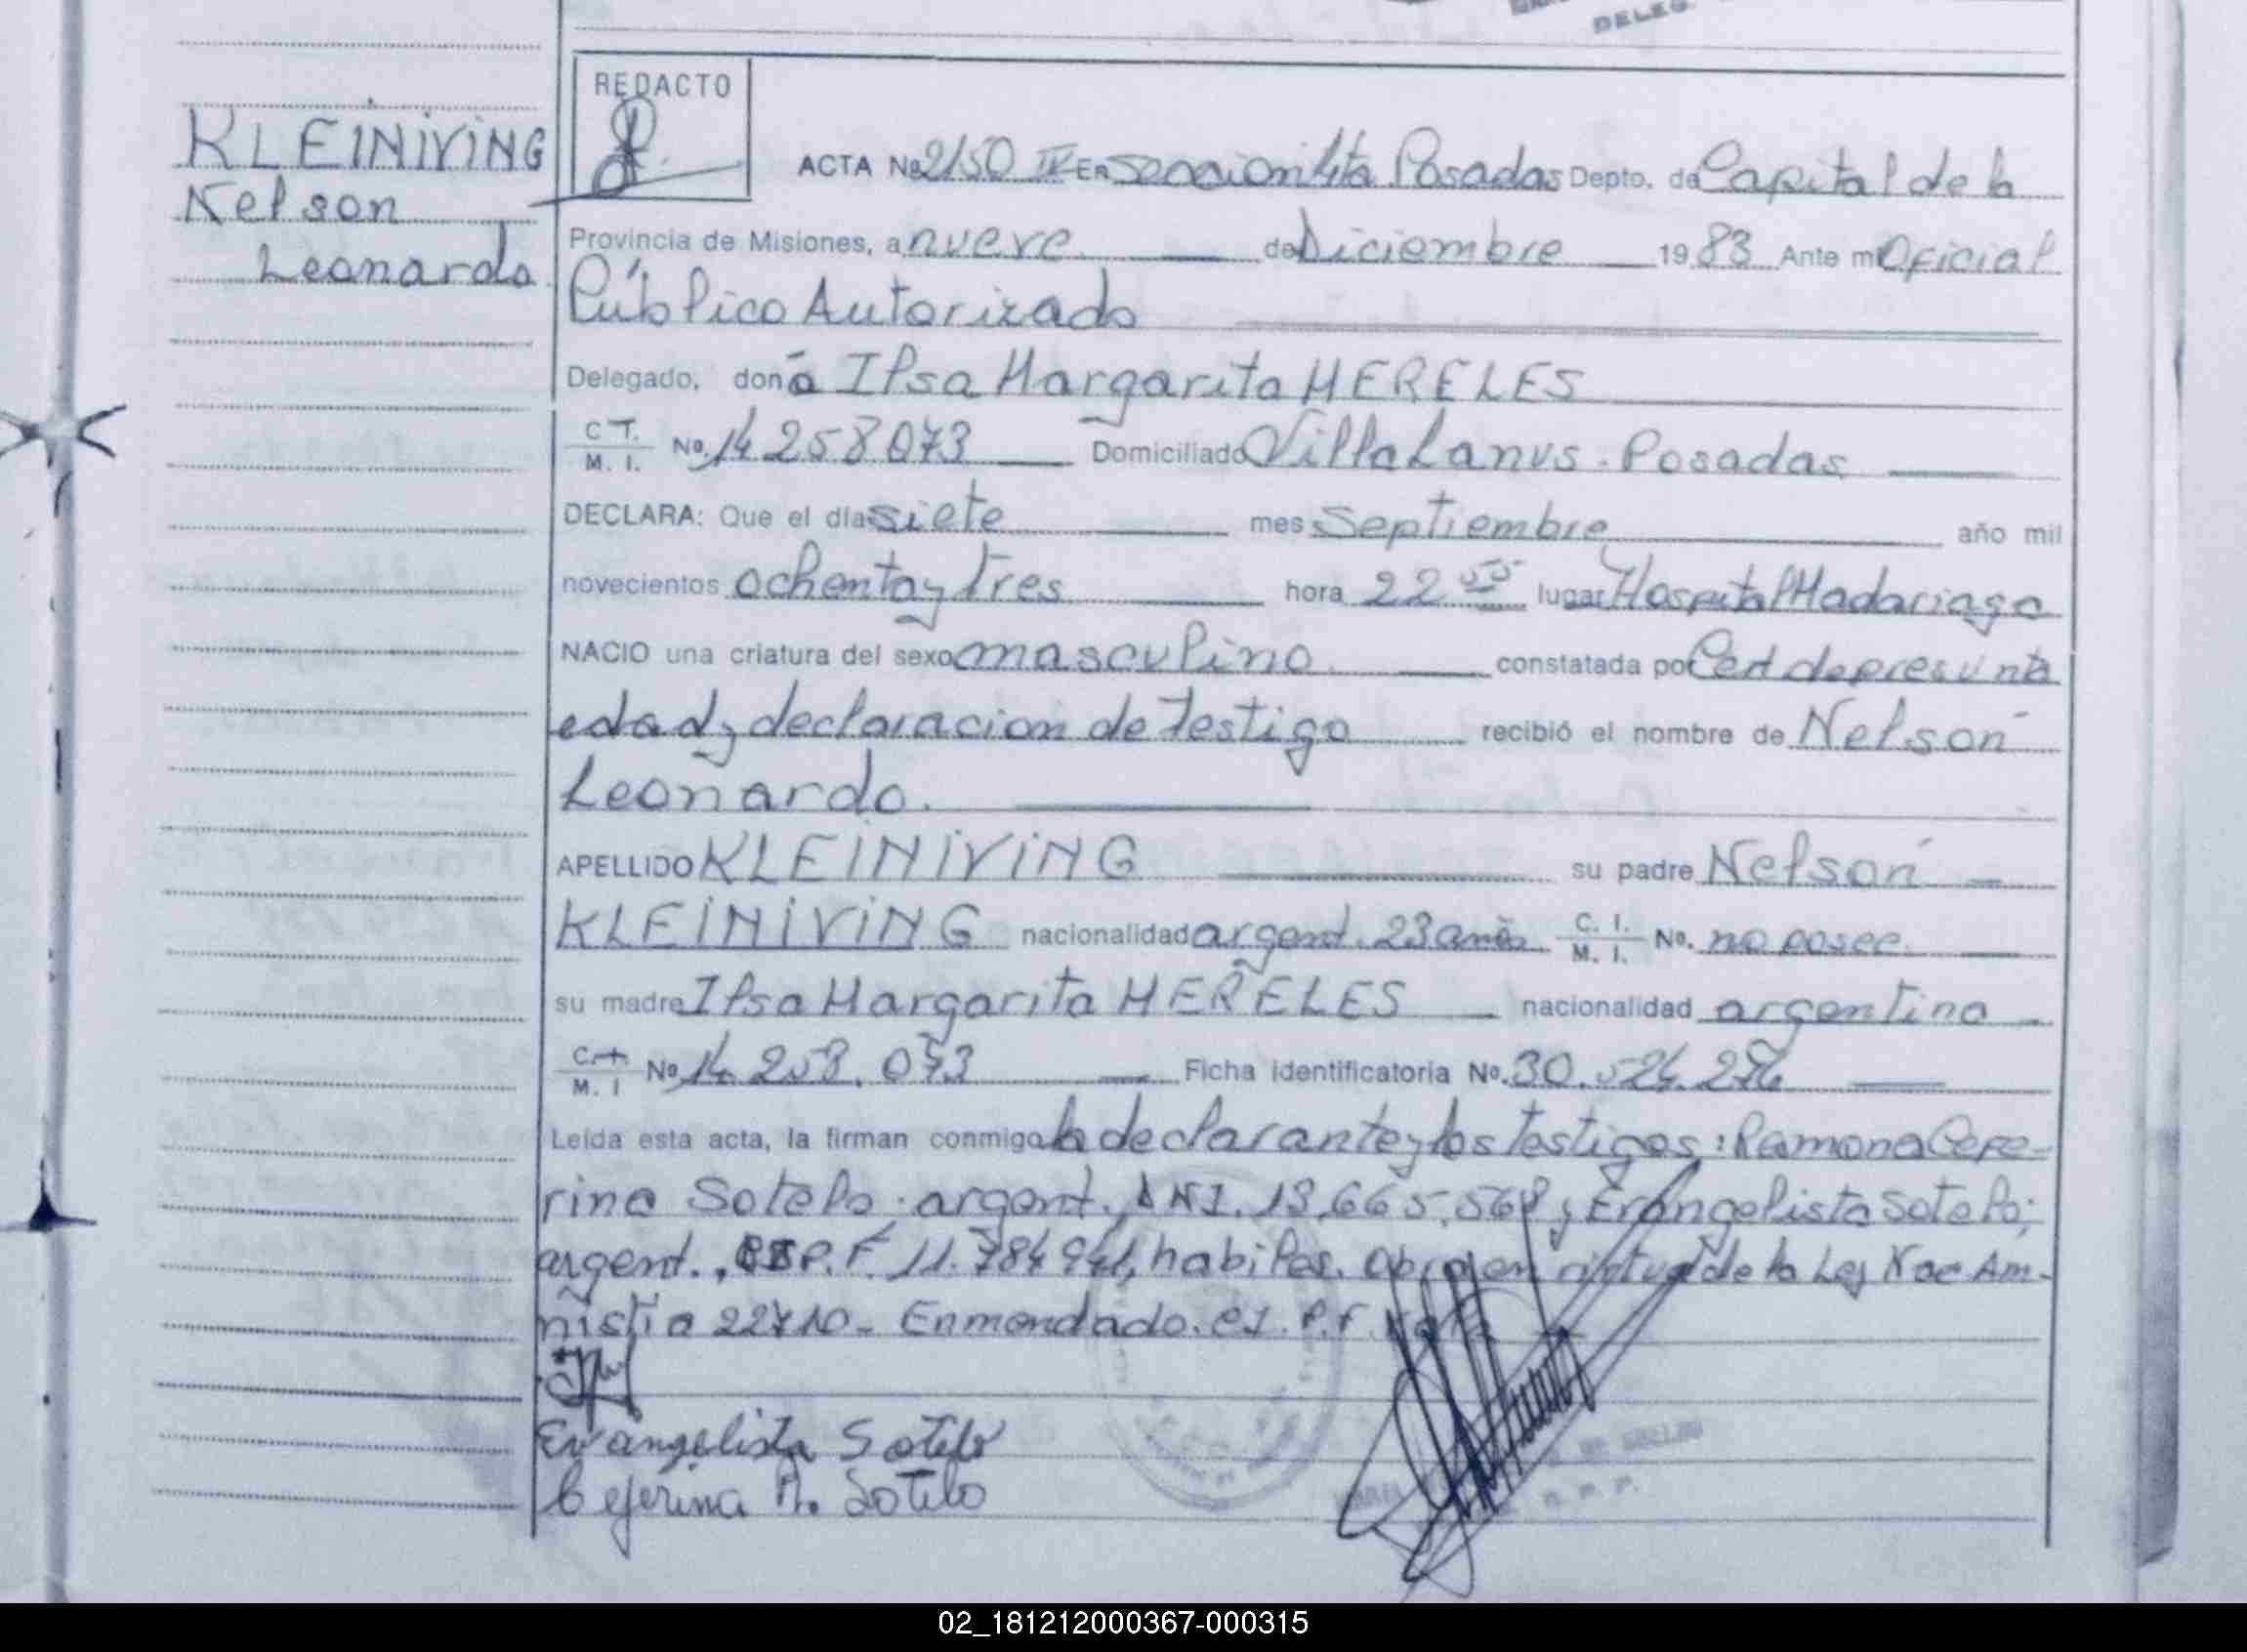 DELEG.
REDACTO
KLEINIVING
Nelson
Leonardo
ACTA No 2150 IV En seccion 4ta Posadas Depto. de Capital de la
Provincia de Misiones, a nueve de Diciembre 1983 Ante mi Oficial
Público Autorizado
Delegado, doña Ilsa Margarita MERELES
C.I. M. I. No. 14 258 073 Domiciliado Villa Lanus. Posadas
DECLARA: Que el día siete mes Septiembre año mil
novecientos ochenta y tres hora 22 55 lugar Hospital Madariaga
NACIO una criatura del sexo masculino. constatada por Cert de presunta
edad y declaracion de testigo recibió el nombre de Nelson
Leonardo.
APELLIDO KLEINIVING su padre Nelson
KLEINIVING nacionalidad argent. 23 años C. I. M. I. No. no posee.
su madre Ilsa Margarita MERELES nacionalidad argentina
C. I. M. I No 14. 258. 073 Ficha identificatoria No. 30. 524. 276
Leída esta acta, la firman conmigo la declarante y los testigos: Ramona Cefe-
rina Sotelo. argent. DNI. 13.665.568 y Evangelista Sotelo;
argent., P.F. 11.784 941, habiles. en virtud de la Ley Nac Am-
nistia 22710 - Enmendado. CI. P.F.
Evangelista Sotelo
Ceferina R. Sotelo
02_181212000367-000315